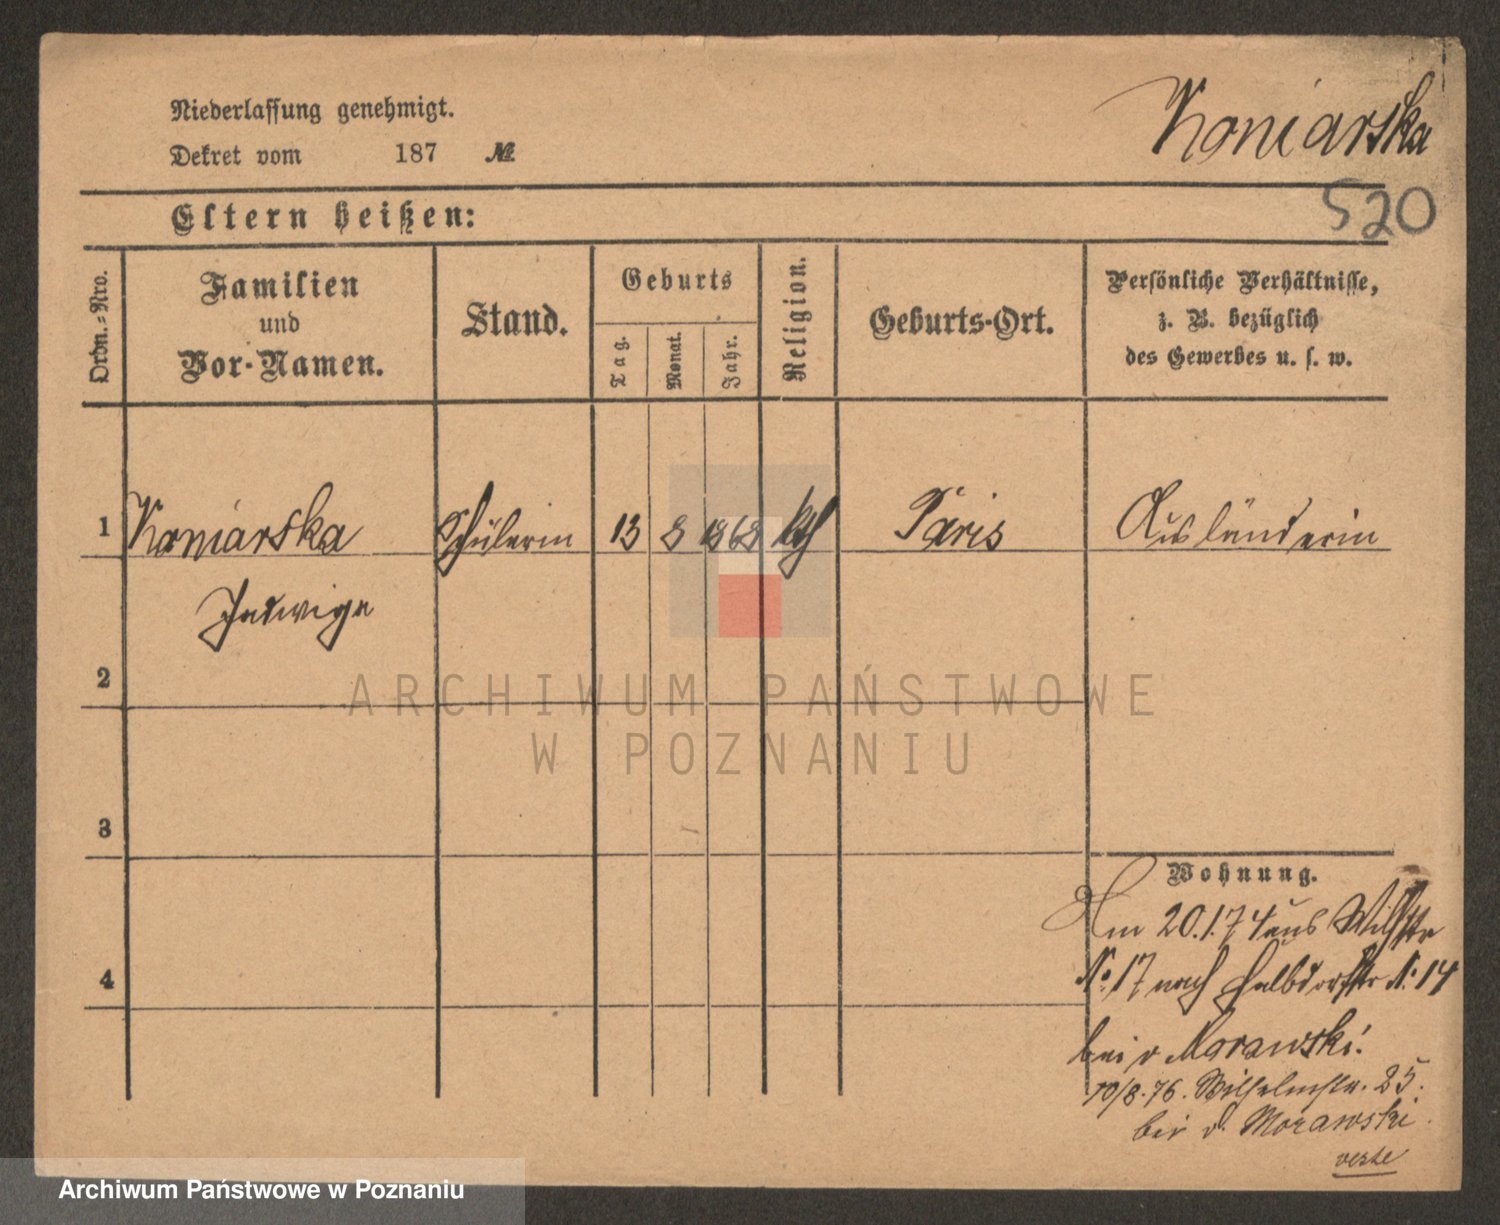 Niederlassung genehmigt.
Dekret vom 187 №
Koniarska
520
Eltern heißen:
Ordn.-Nro.
Familien
und
Vor-Namen.
Stand.
Geburts
Tag.
Monat.
Jahr.
Religion.
Geburts-Ort.
Persönliche Verhältnisse,
z. B. bezüglich
des Gewerbes u. s. w.
1 Koniarska Schülerin 13 8 1868 kth Paris Ausländerin
Hedwige
2
ARCHIWUM PAŃSTWOWE
W POZNANIU
3
Wohnung.
Am 20.1.74 aus Wilhstr
No 17 nach Halbdorfstr N. 14
4
bei v Morawski.
10/8.76. Wilhelmstr. 25.
bei v. Morawski
verte
Archiwum Państwowe w Poznaniu